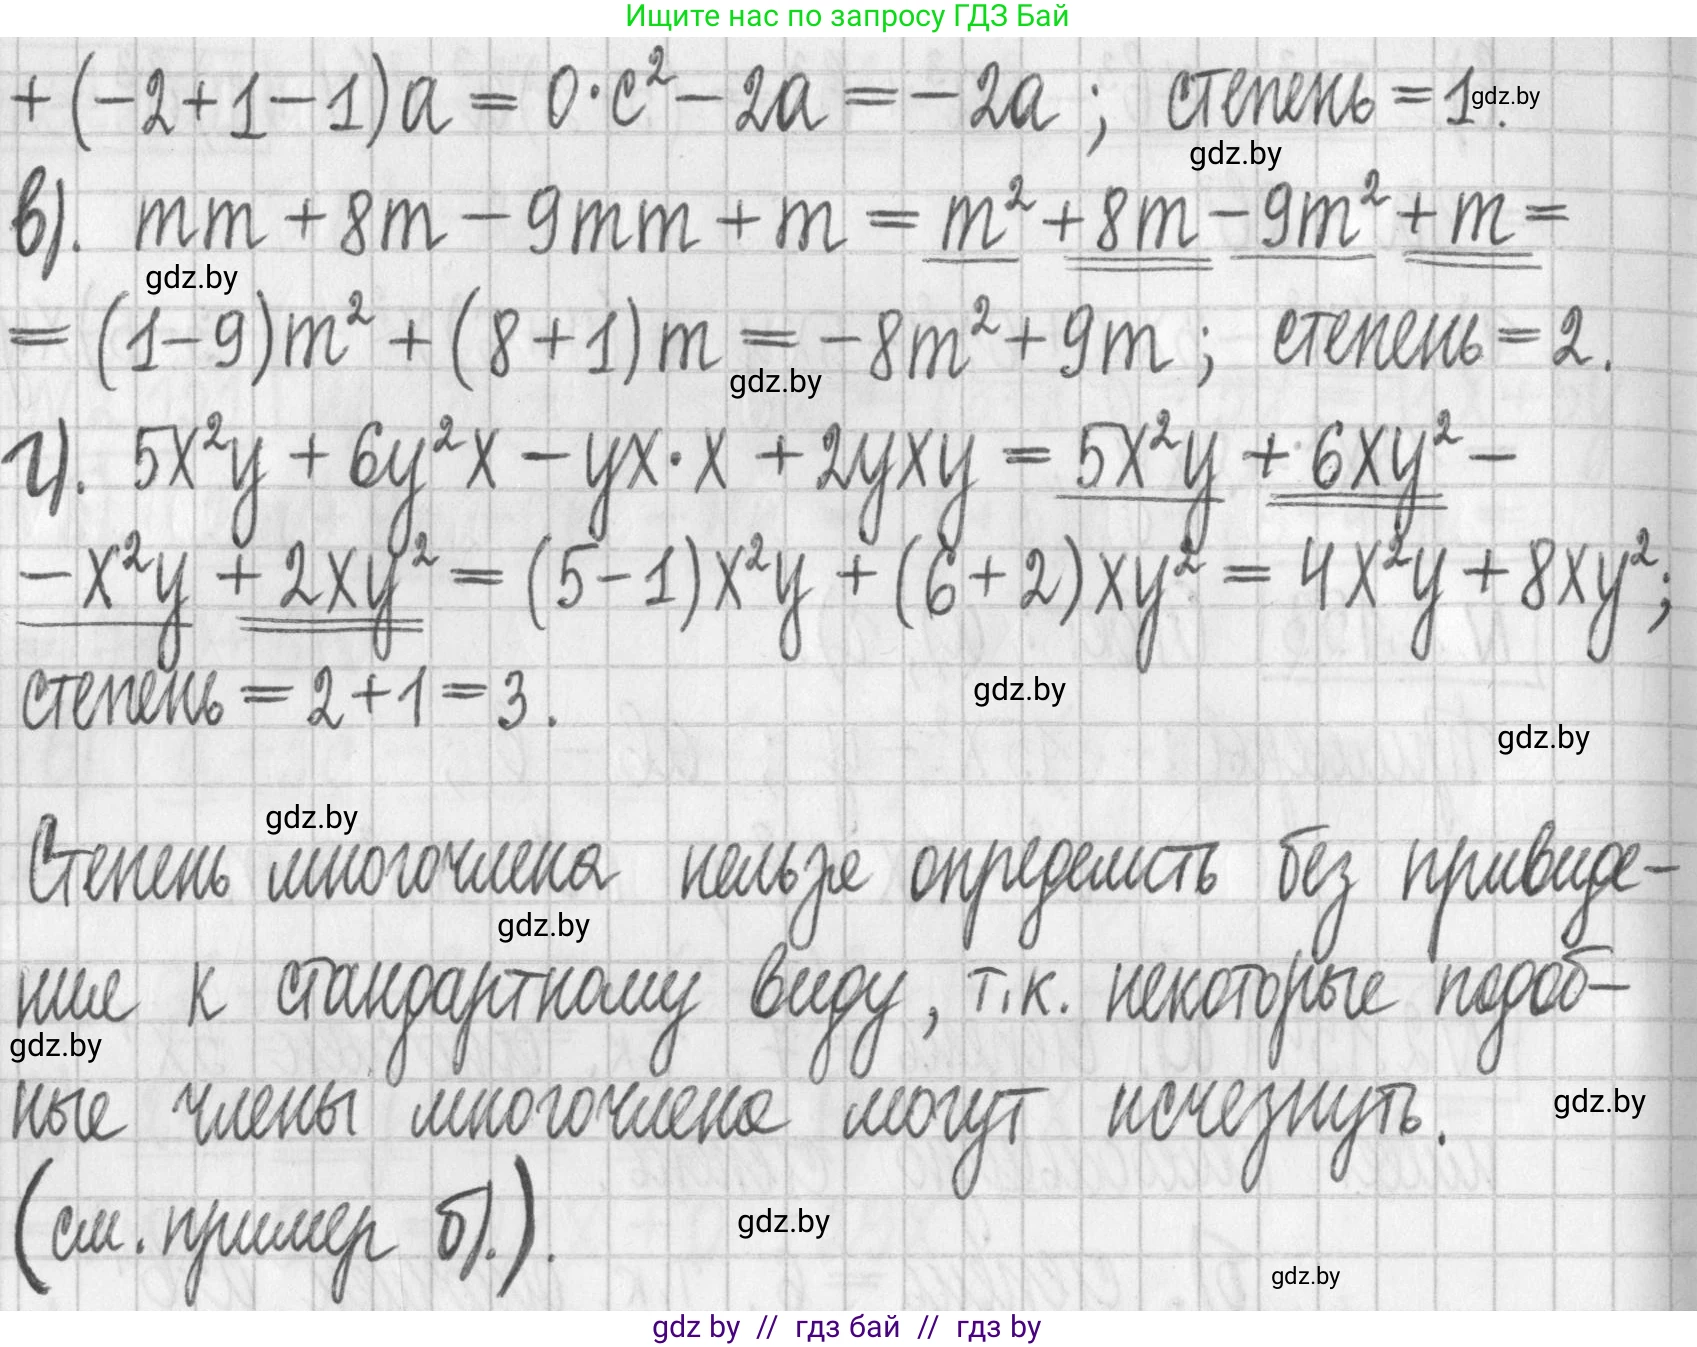 Ищите нас по запросу ГДЗ Бай
+(-2+1-1)a = 0·c²-2a = -2a ; степень = 1.
gdz.by
gdz.by
в). mm + 8m - 9mm + m = m² + 8m - 9m² + m =
gdz.by
= (1-9)m² + (8+1)m = -8m² + 9m ; степень = 2.
gdz.by
г). 5x²y + 6y²x - yx·x + 2yxy = 5x²y + 6xy² -
- x²y + 2xy² = (5-1)x²y + (6+2)xy² = 4x²y + 8xy²;
степень = 2+1 = 3.
gdz.by
gdz.by
gdz.by
Степень многочлена нельзя определить без привиде-
gdz.by
ния к стандартному виду, т.к. некоторые подоб-
gdz.by
ные члены многочлена могут исчезнуть.
gdz.by
(см. пример б).).
gdz.by
gdz.by
gdz by // гдз бай // гдз by